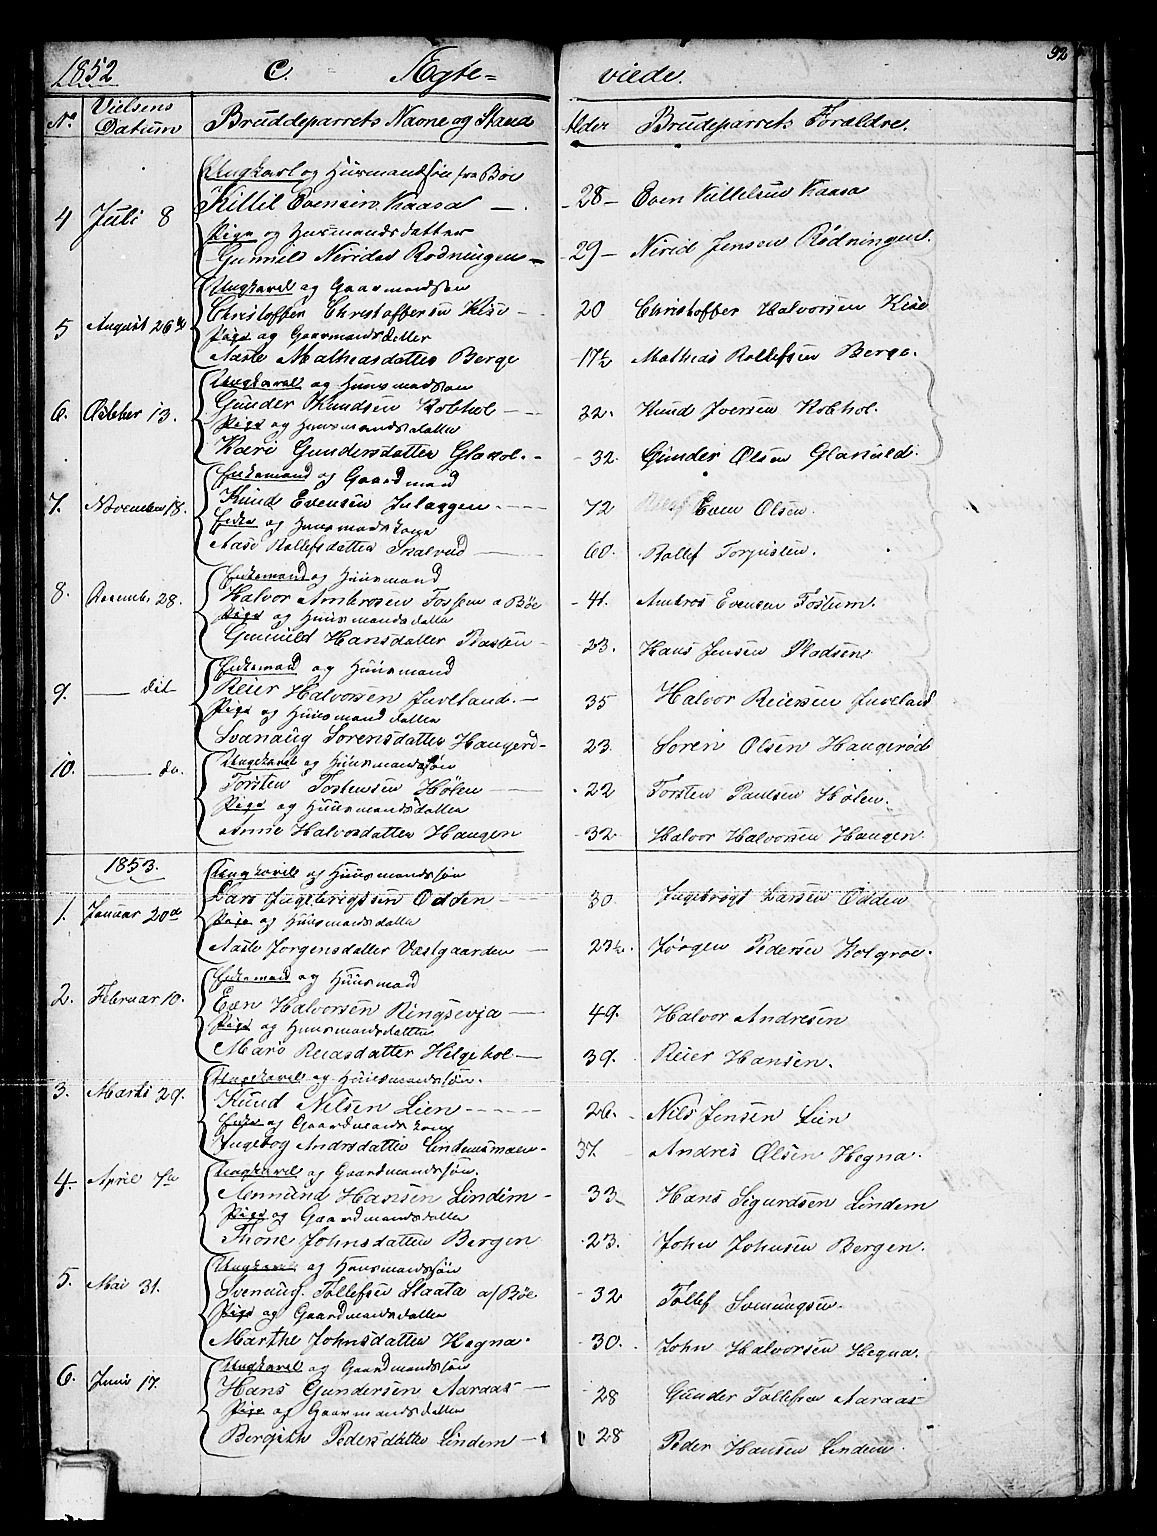 1852 C. Ægte= viede. 92
No. Vielsens Datum Bruddeparrets Navne og Stand Alder Brudeparrets Forældre.
Ungkarl og Huusmandssøn fra Bøe
4 Juli 8 Kittil Evensen Kaasa 28 Even Kittelsen Kaasa
Pige og Husmandsdatter
Gunnild Niridsd Rødningen 29 Nirid Jensen Rødningen.
Ungkarl og Gaarmandsøn
5 August 26de Christoffer Christoffersen Kise 20 Christoffer Halvorsen Kise
Pige og Gaarmandsdatter
Aaste Mathiasdatter Berge 17½ Mathias Rollefsen Berge.
Ungkarl og Huusmandsøn
6. October 13. Gunder Knudsen Kobhol 22. Knud Joersen Kobhol.
Pige og Huusmandsdatter
Kari Gundersdatter Glaahol. 32. Gunder Olsen Glasuld.
Enkemand og Gaardmand
7. November 18. Knud Evensen Julaggen. 72 Even Olsen.
Enke og Huusmandskone
Aase Rollefsdatter Skalvud 60. Rollef Torjusen.
Enkemand og Huusmand
8. December 28. Halvor Ambrosen Tossem a Bøe 41. Ambros Evensen Tostum.
Pige og Huusmandsdatter
Gunnild Hansdatter Plassen 23. Hans Jensen Pladsen
Enkemand og Huusmand
9. dit Reier Halvorsen Juveland. 35 Halvor Reiersen Juveland
Pige og Huusmandsdatter
Svanaug Sorensdatter Haugerd 23. Soren Olsen Haugerød
Ungkarl og Huusmandssøn
10. do. Torsten Tostensen Hølen 22 Torsten Paulsen Hølen.
Pige og Huusmandsdatter
Anne Halvorsdatter Haugen 32. Halvor Halvorsen Haugen
1853. Ungkarl og Huusmandssøn
1. Januar 20de Lars Ingebrigtsen Odden 30. Ingebrøgt Larsen Odden
Pige og Huusmandsdatter
Aaste Jorgensdatter Vestgaarden 23½. Jørgen Pedersen Kolgroe.
Enkemand og Huusmand
2. Februar 10. Even Halvorsen Ringsevja 49. Halvor Andresen
Pige og Huusmandsdatter
Maro Reiasdatter Helgehol 39. Reier Hansen.
Ungkarl og Huusmandssøn.
3. Marts 29. Knud Nilsen Lien 26. Nils Jensen Lien
Enke og Gaardmands kone
Ingebog Andrsdatter Lindemsmoen 37 Andres Olsen Hegna.
Ungkarl og Gaardmandssøn.
4. April 7de Amund Hansen Lindem 33 Hans Sigurdsen Lindem
Pige og Gaardmandsdatter
Thone Johnsdatter Bergen 23. John Johnsen Bergen.
Ungkarl og Huusmandssøn
5. Mai 31. Svenung Tollefsen Staata af Bøe 32 Tollef Svenungsen.
Pige og Gaardmandsdatter
Marthe Johnsdatter Hegna. 30. John Halvorsen Hegna.
Ungkarl og Gaardmandssøn
6. Juni 17. Hans Gundersen Aaraas 28 Gunder Tollefsen Aaraas
Pige og Gaarmandsdatter
Bergith Pedersdatter Lindem 28 Peder Hansen Lindem.